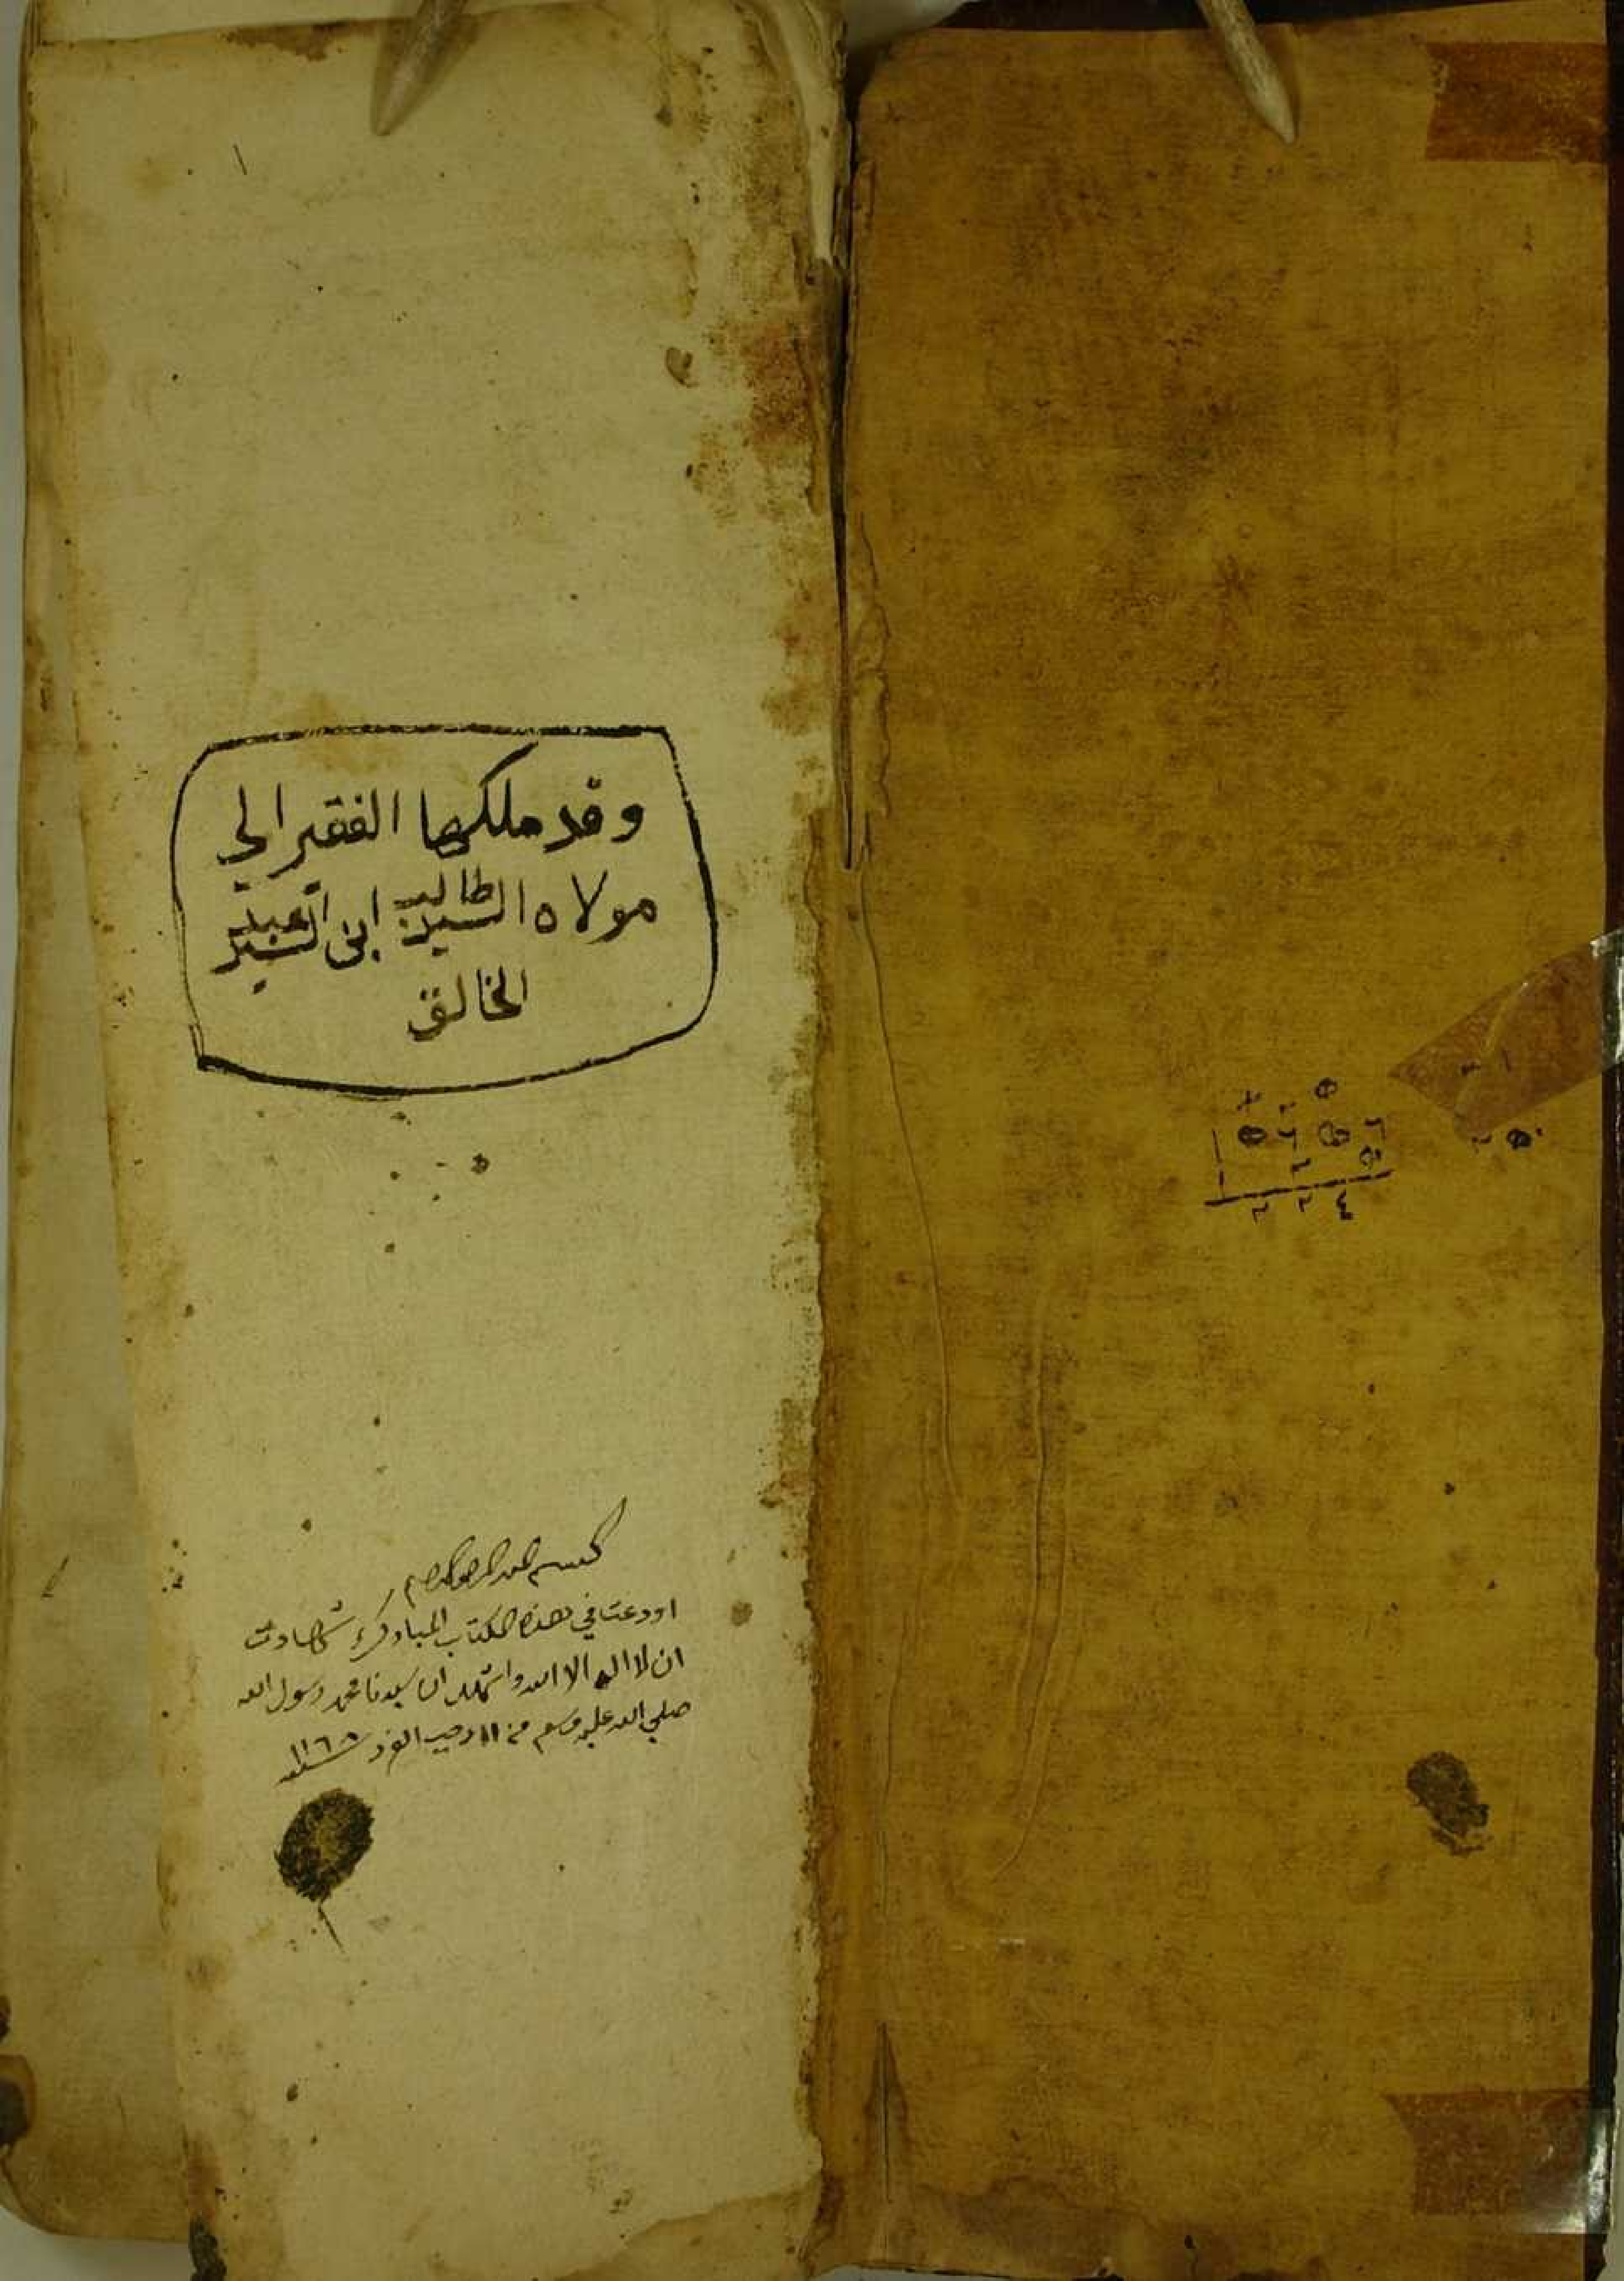 ١
وقد ملكها الفقير الى
مولاه السيد طالب ابن السيد عبد
الخالق
بسم الله الرحمن الرحيم
اودعت في هذه الكتاب المبارك شهادت
ان لا اله الا الله واشهد ان سيدنا محمد رسول الله
صلى الله عليه وسلم رجب الفرد سنة ١١٦٨
٢ ٢ ٤